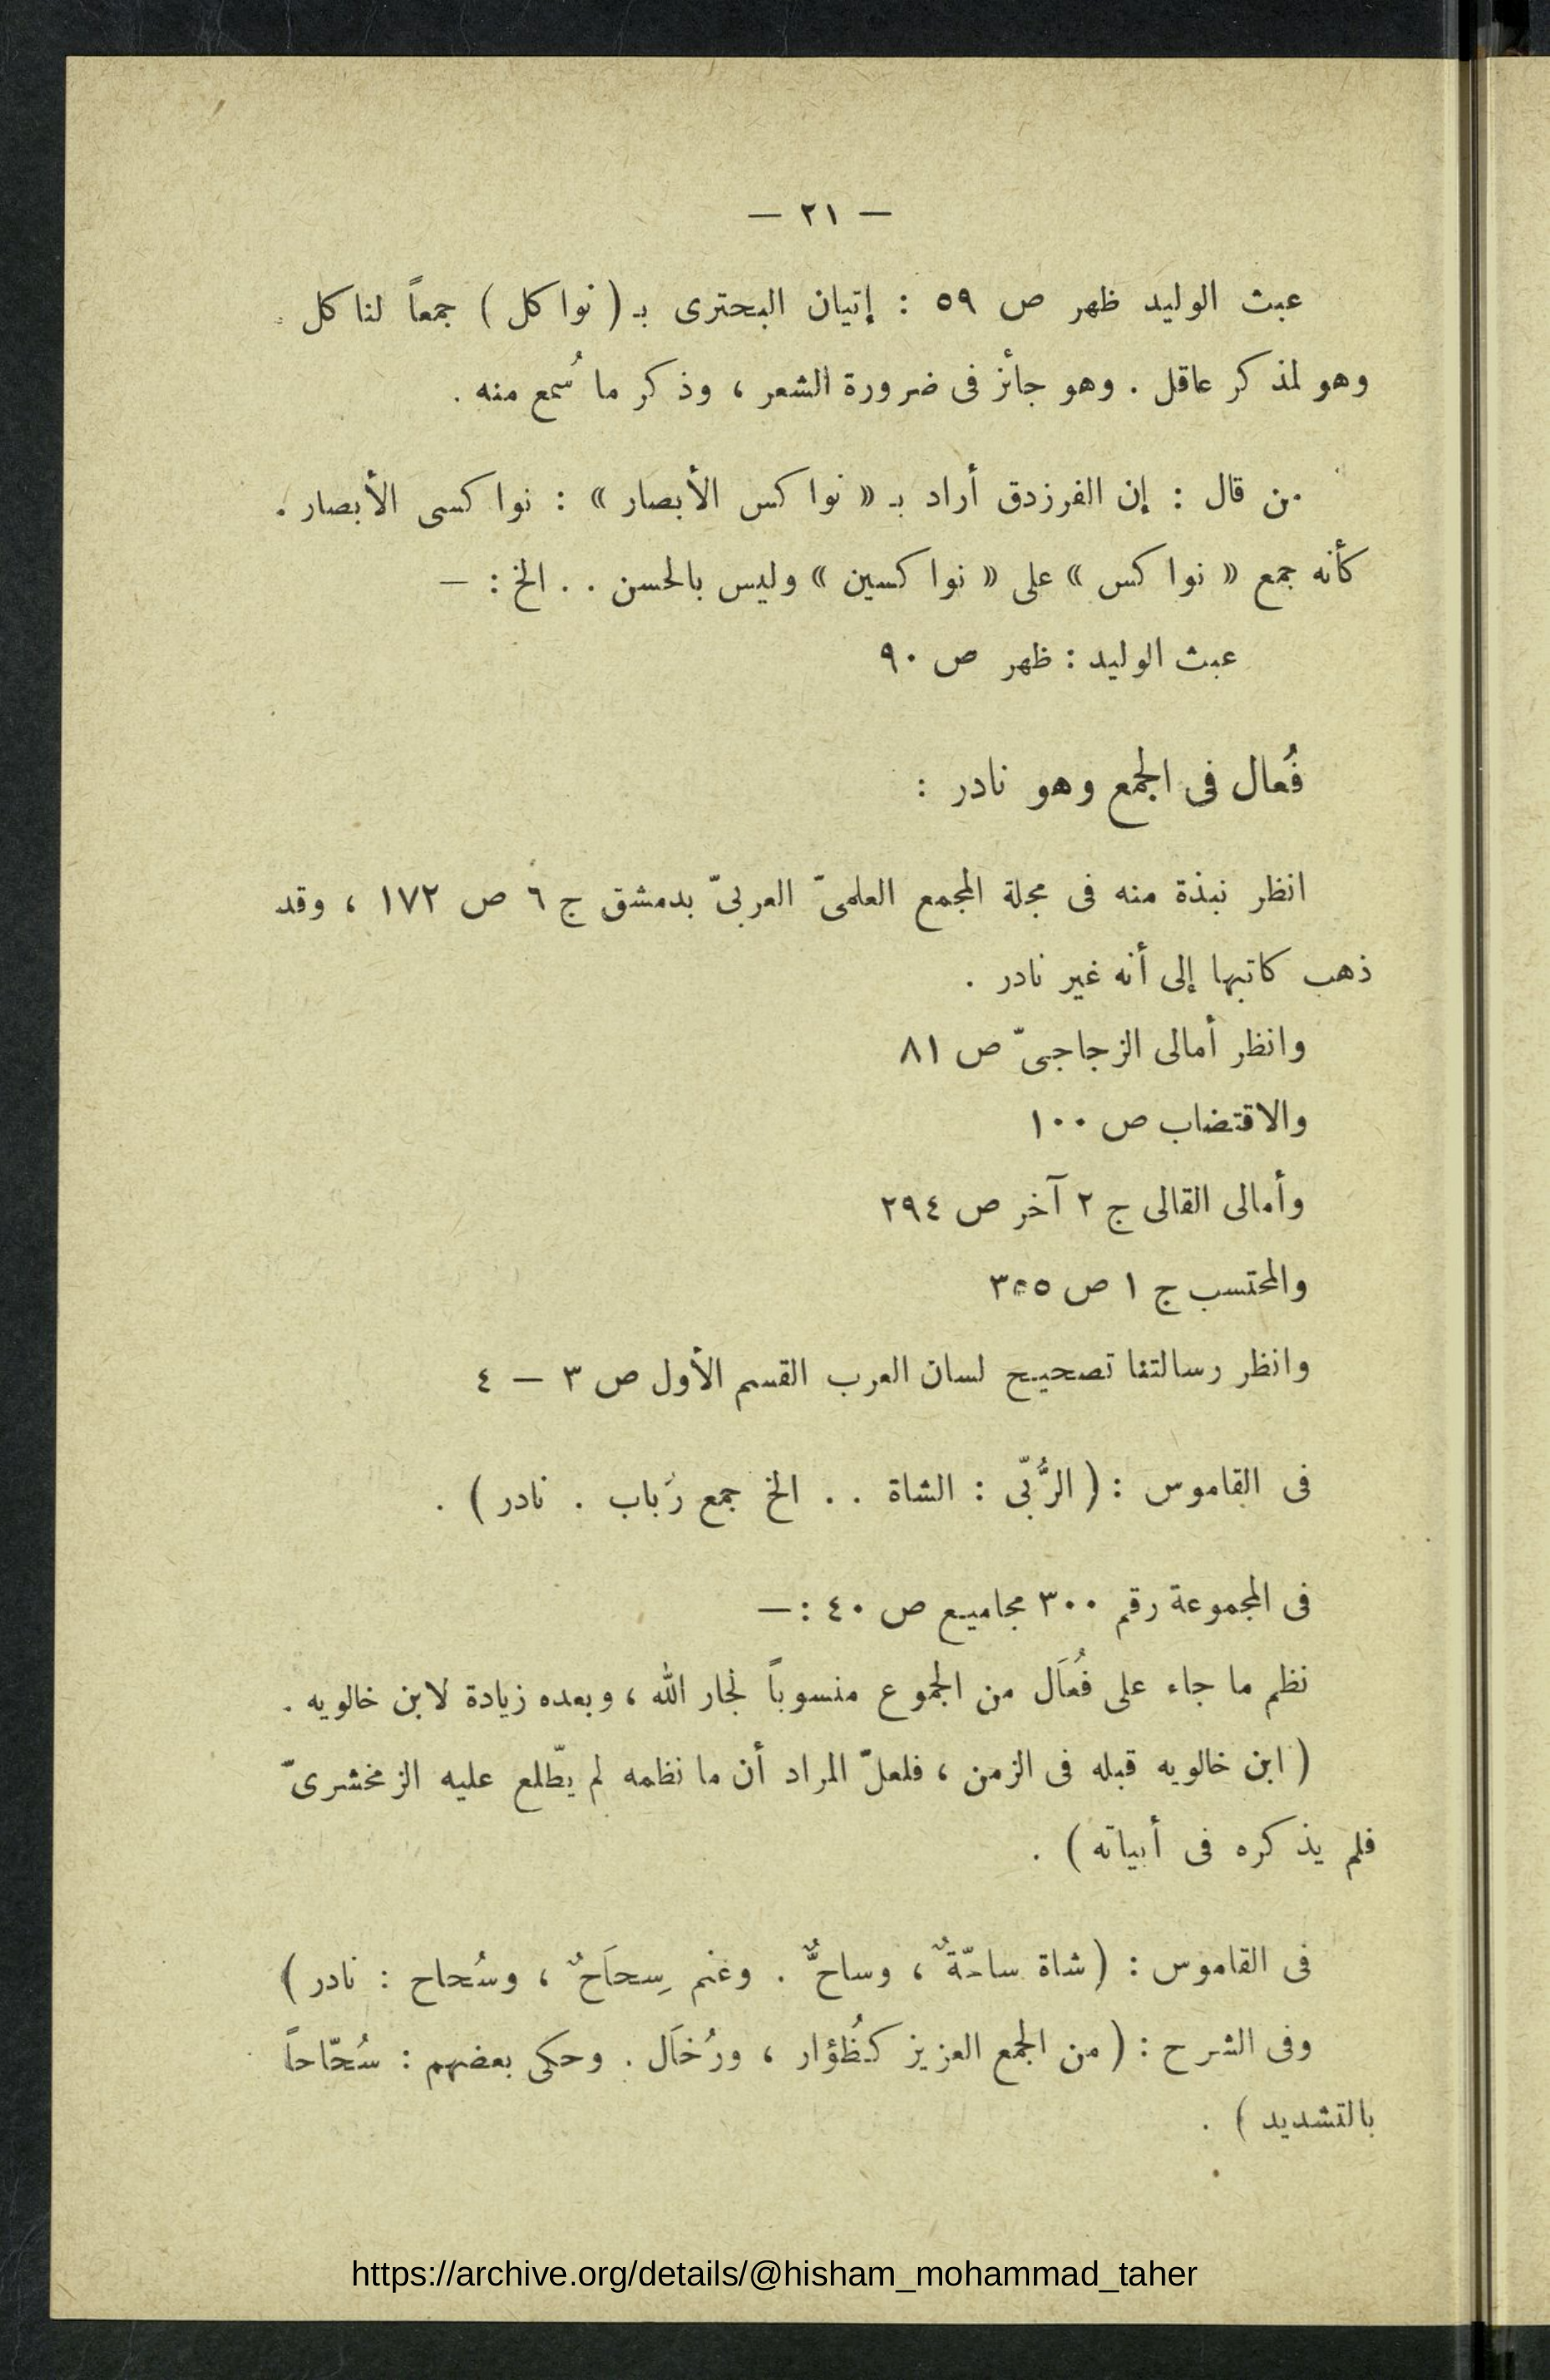 — ٢١ —
عبث الوليد ظهر ص ٥٩ : إتيان البحترى بـ ( نواكل ) جمعاً لناكل
وهو لمذكر عاقل . وهو جائز فى ضرورة الشعر ، وذكر ما سُمع منه .
من قال : إن الفرزدق أراد بـ « نواكس الأبصار » : نواكسى الأبصار .
كأنه جمع « نواكس » على « نواكسين » وليس بالحسن . . الخ : —
عبث الوليد : ظهر ص ٩٠
فُعال فى الجمع وهو نادر :
انظر نبذة منه فى مجلة المجمع العلمىّ العربىّ بدمشق ج ٦ ص ١٧٢ ، وقد
ذهب كاتبها إلى أنه غير نادر .
وانظر أمالى الزجاجىّ ص ٨١
والاقتضاب ص ١٠٠
وأمالى القالى ج ٢ آخر ص ٢٩٤
والمحتسب ج ١ ص
وانظر رسالتنا تصحيح لسان العرب القسم الأول ص ٣ — ٤
فى القاموس : ( الرُّبّى : الشاة . . الخ جمع رُباب . نادر ) .
فى المجموعة رقم ٣٠٠ مجاميع ص ٤٠ : —
نظم ما جاء على فُعَال من الجموع منسوباً لجار الله ، وبعده زيادة لابن خالويه .
( ابن خالويه قبله فى الزمن ، فلعلّ المراد أن ما نظمه لم يطّلع عليه الزمخشرىّ
فلم يذكره فى أبياته ) .
فى القاموس : ( شاة ساحّةٌ ، وساحٌّ . وغنم سِحَاحٌ ، وسُحاح : نادر )
وفى الشرح : ( من الجمع العزيز كظُؤار ، ورُخَال . وحكى بعضهم : سُحّاحاً
بالتشديد ) .
https://archive.org/details/@hisham_mohammad_taher